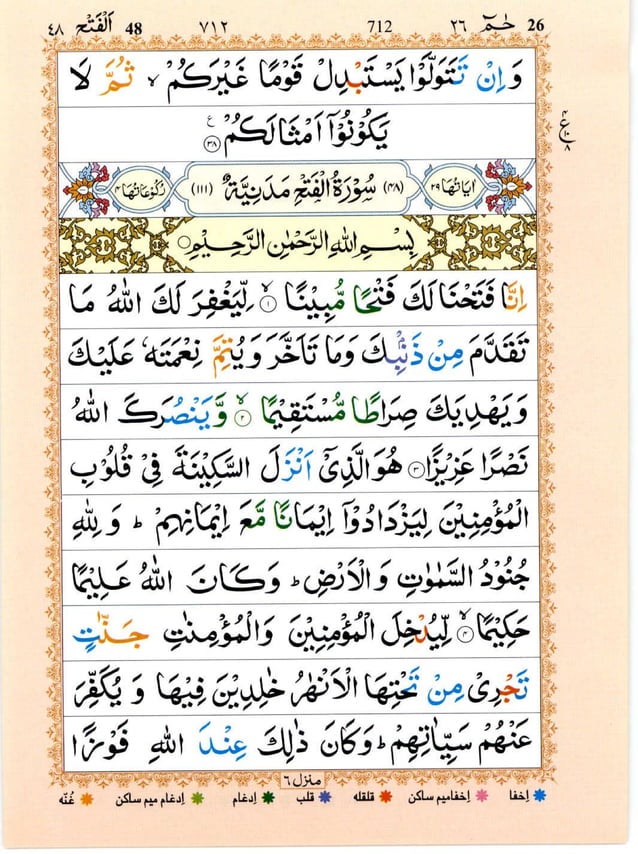 26 حٰمٓ ٢٦ 712 ٧١٢ 48 اَلْفَتْح ٤٨
وَاِنْ تَتَوَلَّوْا يَسْتَبْدِلْ قَوْمًا غَيْرَكُمْ ۙ ثُمَّ لَا
يَكُوْنُوْۤا اَمْثَالَكُمْ ۟ ٣٨
ع ٤ ٨
اٰيَاتُهَا ٢٩ (٤٨) سُوْرَةُ الْفَتْحِ مَدَنِيَّةٌ (١١١) رُكُوْعَاتُهَا ٤
بِسْمِ اللّٰهِ الرَّحْمٰنِ الرَّحِيْمِ
اِنَّا فَتَحْنَا لَكَ فَتْحًا مُّبِيْنًا ۙ ١ لِّيَغْفِرَ لَكَ اللّٰهُ مَا
تَقَدَّمَ مِنْ ذَنْۢبِكَ وَمَا تَاَخَّرَ وَيُتِمَّ نِعْمَتَهٗ عَلَيْكَ
وَيَهْدِيَكَ صِرَاطًا مُّسْتَقِيْمًا ۙ ٢ وَّيَنْصُرَكَ اللّٰهُ
نَصْرًا عَزِيْزًا ٣ هُوَ الَّذِيْۤ اَنْزَلَ السَّكِيْنَةَ فِيْ قُلُوْبِ
الْمُؤْمِنِيْنَ لِيَزْدَادُوْۤا اِيْمَانًا مَّعَ اِيْمَانِهِمْ ؕ وَلِلّٰهِ
جُنُوْدُ السَّمٰوٰتِ وَالْاَرْضِ ؕ وَكَانَ اللّٰهُ عَلِيْمًا
حَكِيْمًا ۙ ٤ لِّيُدْخِلَ الْمُؤْمِنِيْنَ وَالْمُؤْمِنٰتِ جَنّٰتٍ
تَجْرِيْ مِنْ تَحْتِهَا الْاَنْهٰرُ خٰلِدِيْنَ فِيْهَا وَيُكَفِّرَ
عَنْهُمْ سَيِّاٰتِهِمْ ؕ وَكَانَ ذٰلِكَ عِنْدَ اللّٰهِ فَوْزًا
منزل ٦
اِخفا اِخفامیم ساکن قلقله قلب اِدغام اِدغام میم ساکن غُنّه